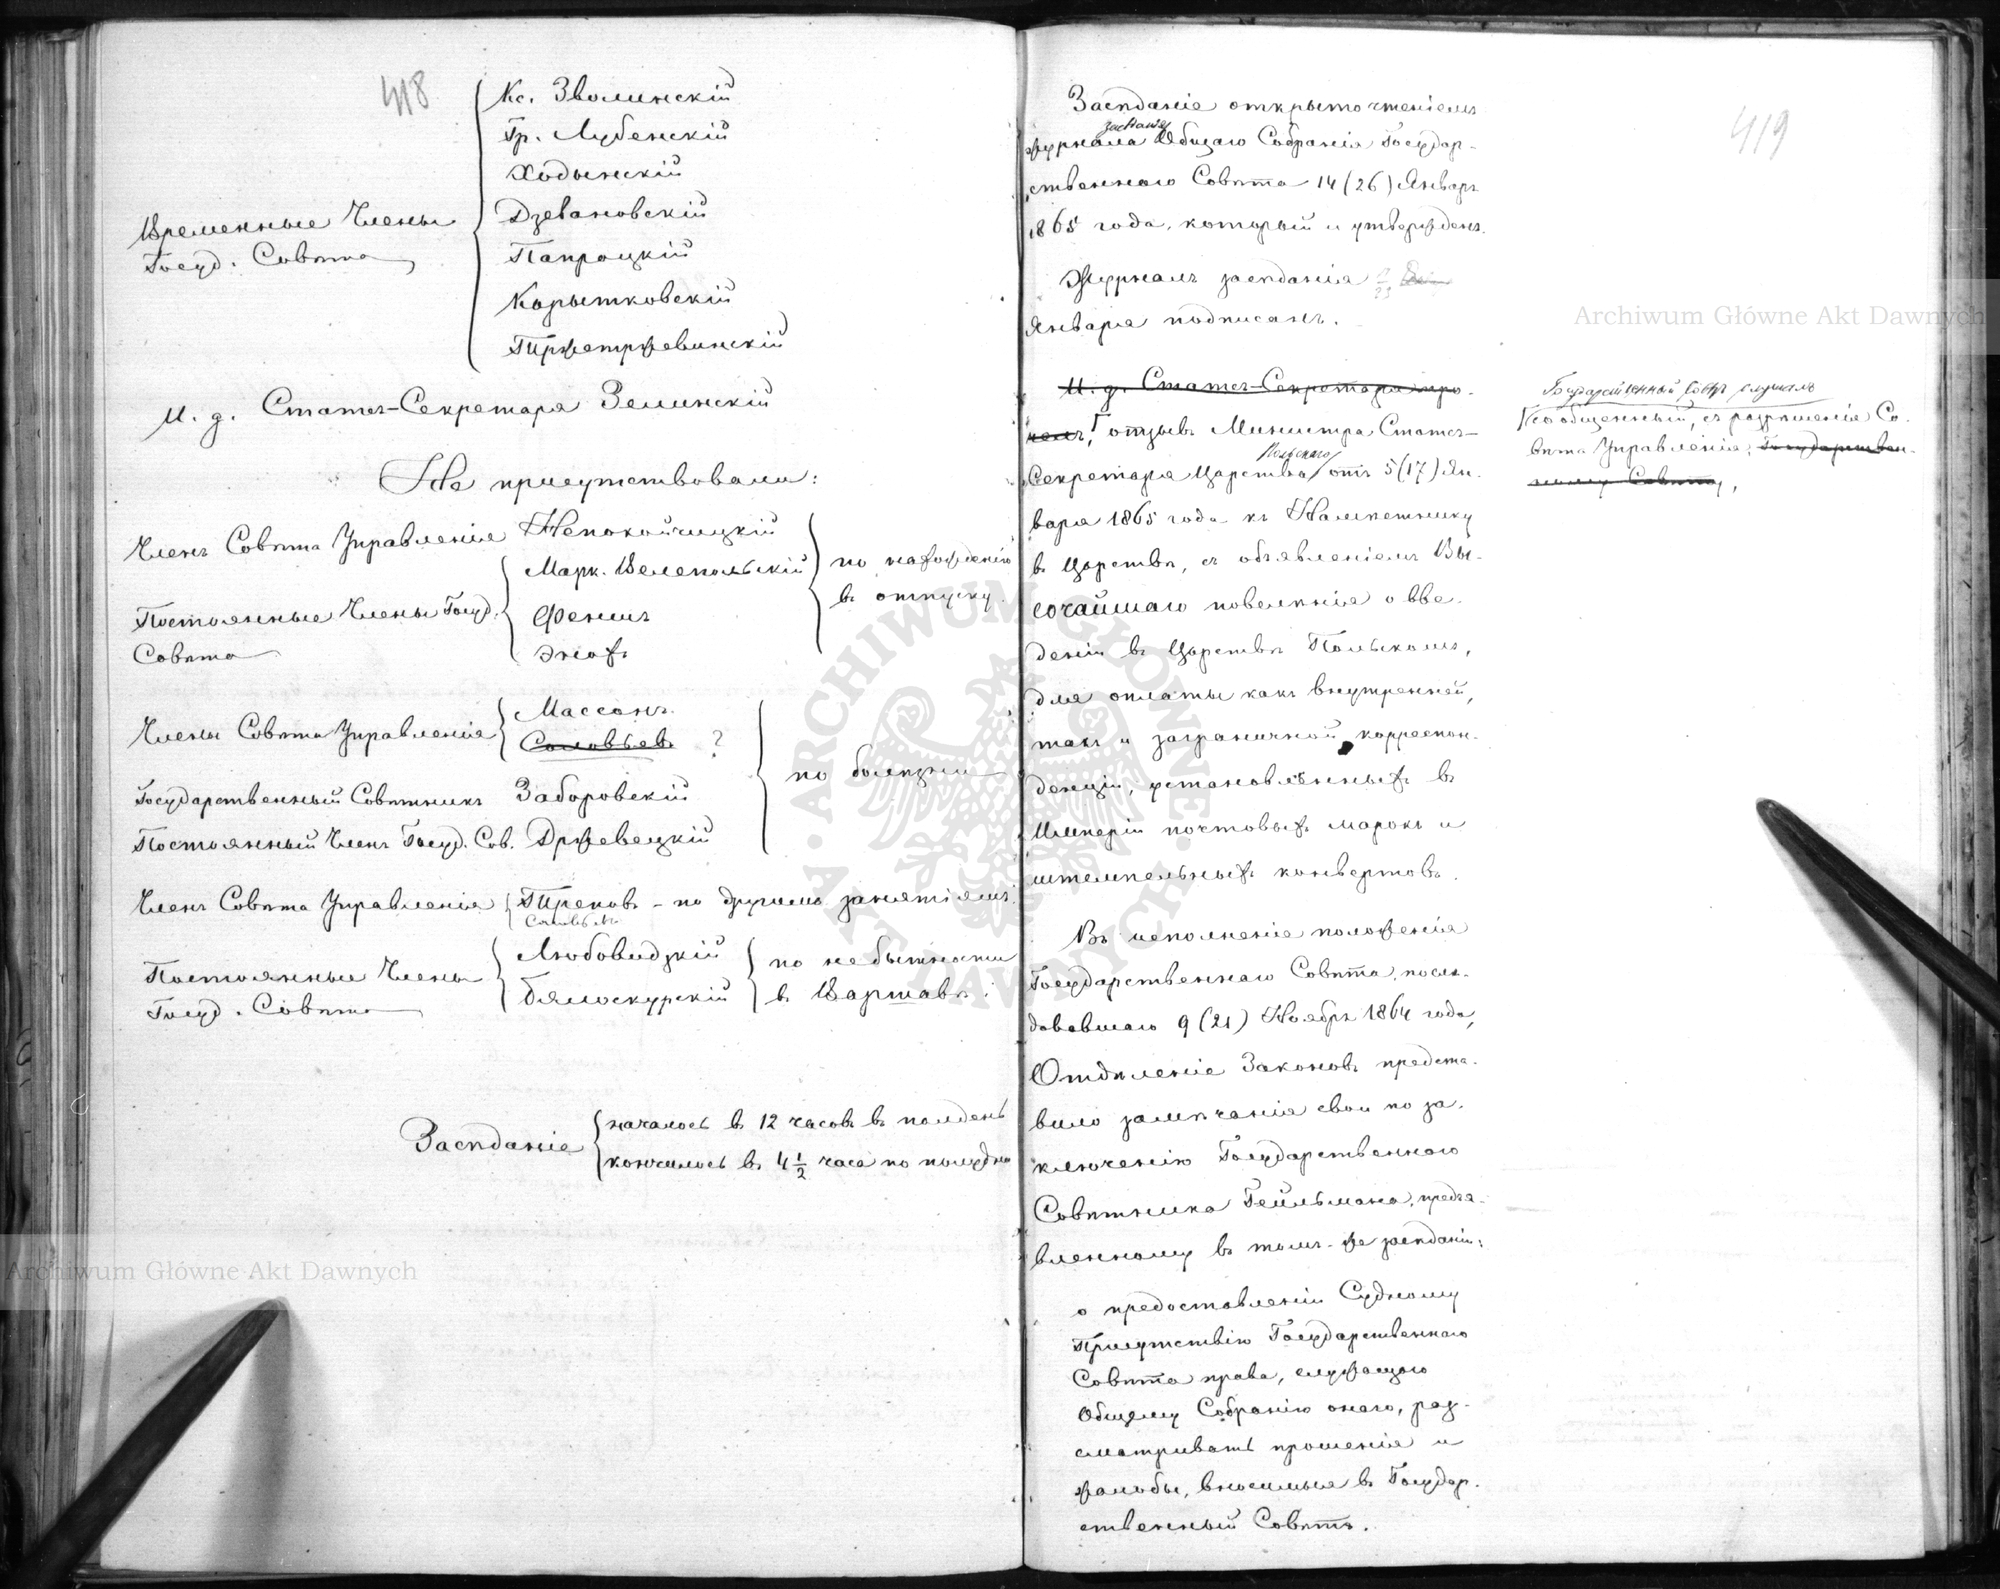 418
Кс. Зволинскій
Гр. Лубенскій
Ходынскій
Дзевановскій
Папроцкій
Корытковскій
Пржетржевинскій
Временные Члены
Госуд. Совѣта
И. д. Статсъ-Секретаря Зелинскій
Не присутствовали:
Членъ Совѣта Управленія Непокойчицкій
Постоянные Члены Госуд.
Совѣта
Марк. Велепольскій
Феншъ
Энохъ
по нахожденію
въ отпуску.
Члены Совѣта Управленія
Массонъ
Соловьевъ ?
Государственный Совѣтникъ Заборовскій
Постоянный Членъ Госуд. Сов. Држевецкій
по болѣзни
Членъ Совѣта Управленія Треповъ - по другимъ занятіямъ.
Соловьевъ
Постоянные Члены
Госуд. Совѣта
Любовидзкій
Бялоскурскій
по небытности
въ Варшавѣ.
Засѣданіе
началось въ 12 часовъ въ полдень
кончилось въ 4 1/2 часа по полудни
419
Засѣданіе открыто чтеніемъ
засѣданія
журнала Общаго Собранія Государ-
ственнаго Совѣта 14 (26) Январѣ
1865 года, который и утвержденъ.
Журналъ засѣданія
Января подписанъ.
И. д. Статсъ-Секретаря про-
челъ, отзывъ Министра Статсъ-
Польскаго
Секретаря Царства отъ 5 (17) Ян-
варя 1865 года къ Намѣстнику
въ Царствѣ, съ объявленіемъ Вы-
сочайшаго повелѣнія о вве-
деніи въ Царствѣ Польскомъ,
для оплаты какъ внутренней,
такъ и заграничной корреспон-
денціи, установленныхъ въ
Имперіи почтовыхъ марокъ и
штемпельныхъ конвертовъ.
Въ исполненіе положенія
Государственнаго Совѣта, послѣ-
довавшаго 9 (21) Ноябрѣ 1864 года,
Отдѣленіе Законовъ предста-
вило замѣчанія свои по за-
ключенію Государственнаго
Совѣтника Гейльмана, предъя-
вленному въ томъ-же засѣданіи:
о предоставленіи Судному
Присутствію Государственнаго
Совѣта права, служащаго
Общему Собранію онаго, раз-
сматривать прошенія и
жалобы, вносимыя въ Государ-
ственный Совѣтъ.
Государственный Совѣтъ слушалъ
сообщенный, съ разрѣшенія Со-
вѣта Управленія, Государствен-
ному Совѣту,
Archiwum Główne Akt Dawnych
Archiwum Główne Akt Dawnych
ARCHIWUM GŁÓWNE AKT DAWNYCH